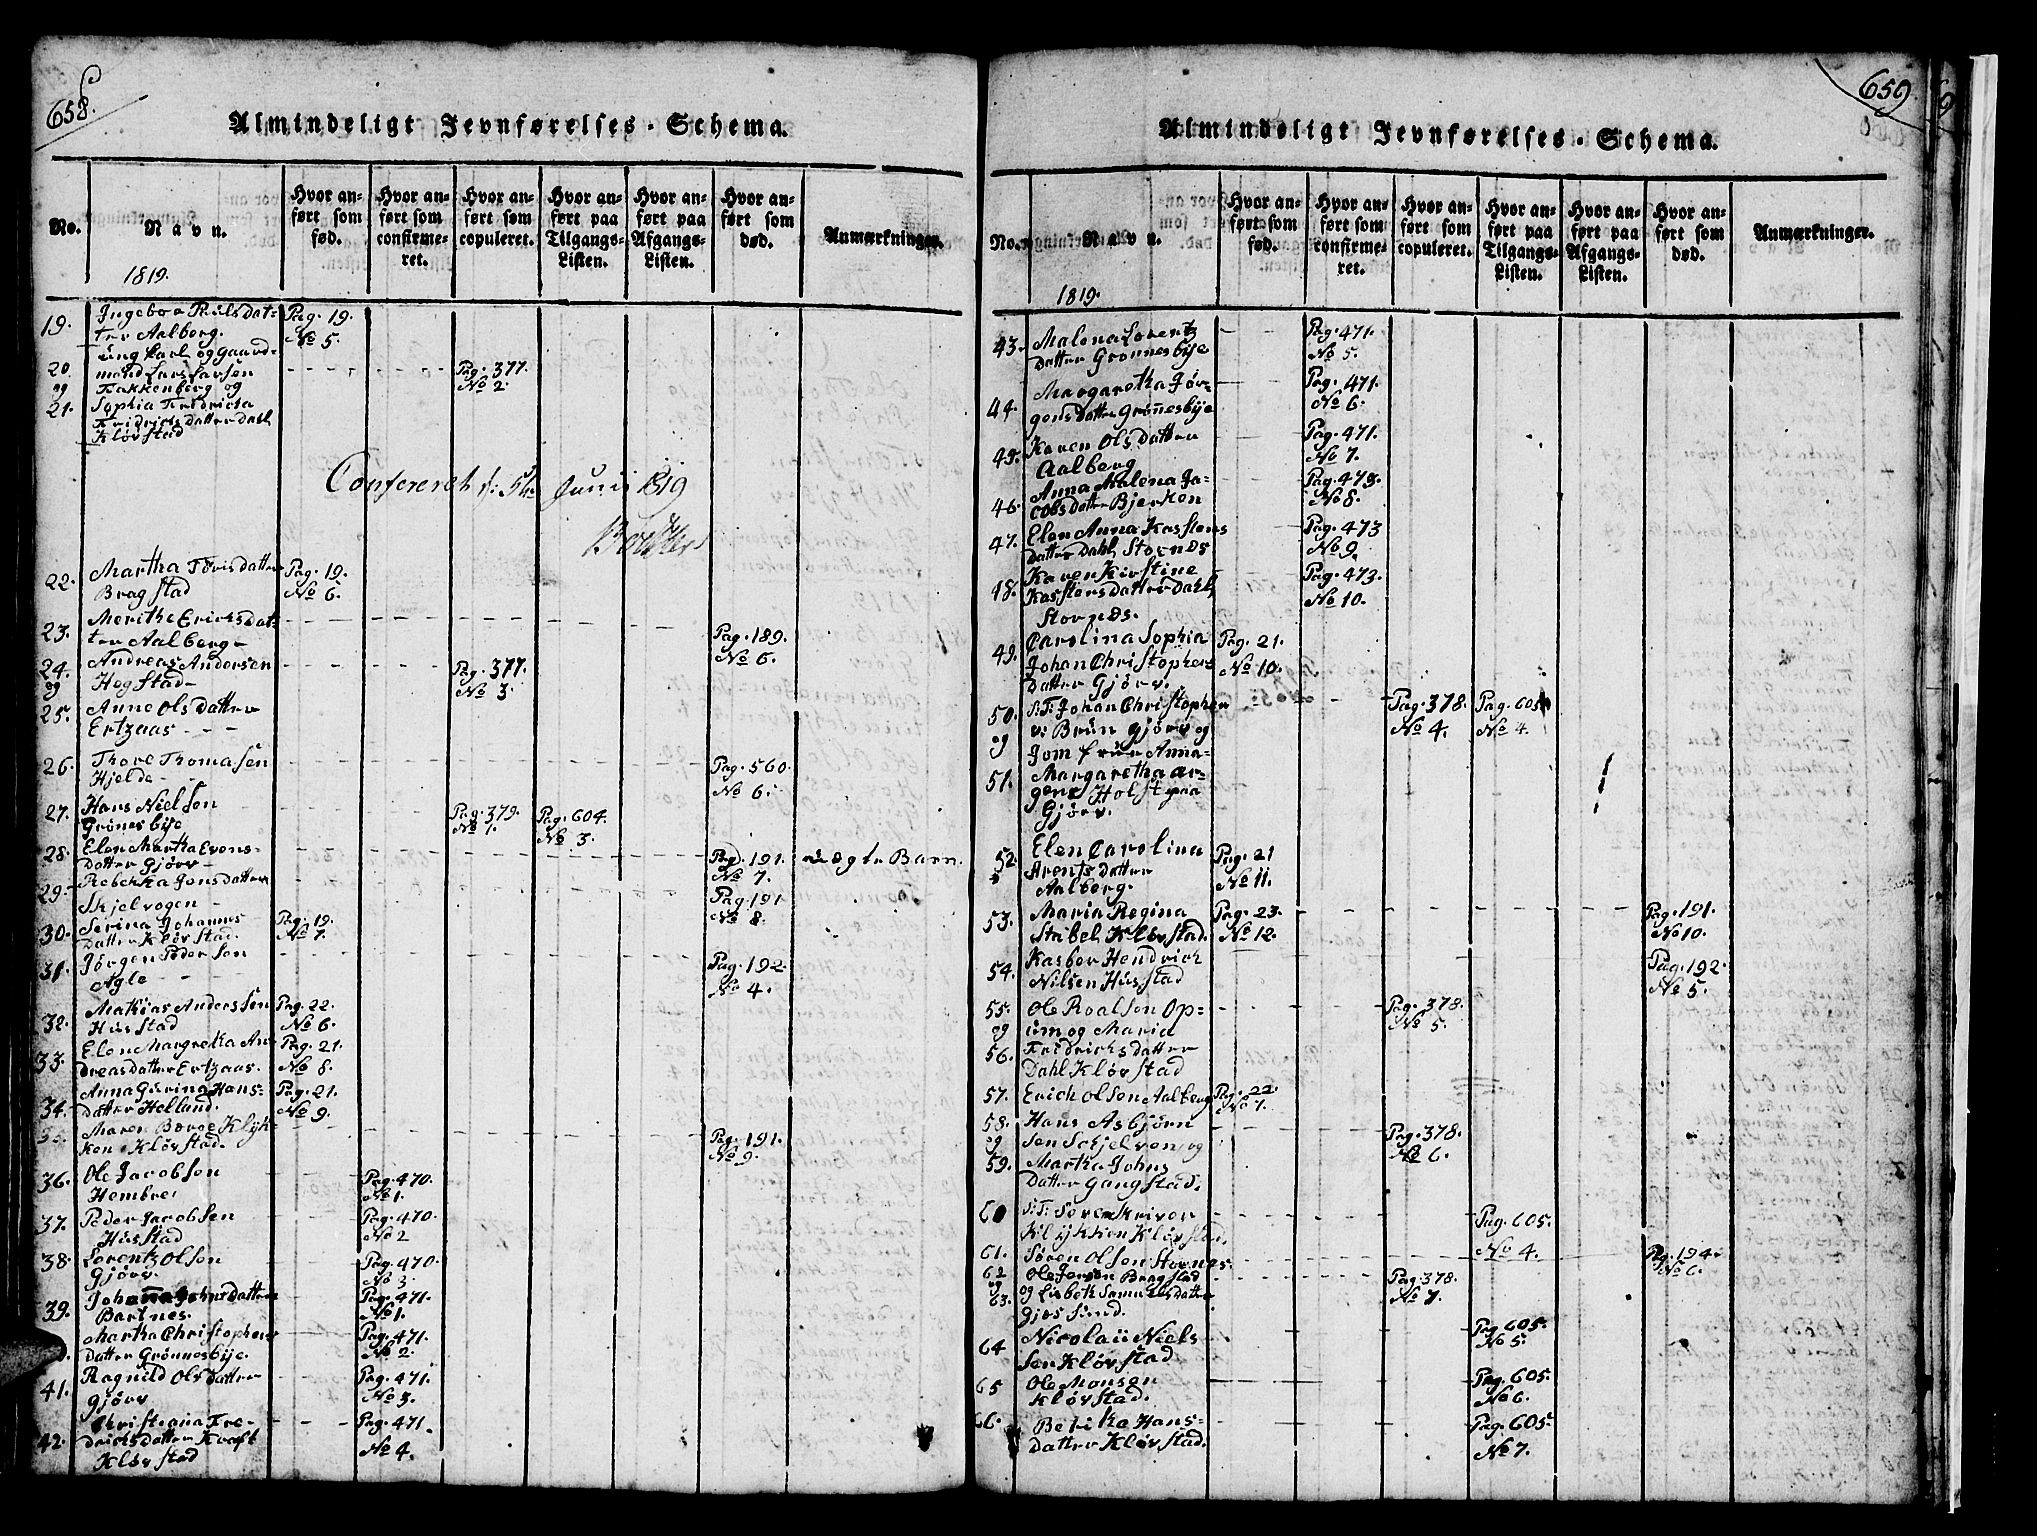 658.
Almindeligt Jevnførelses-Schema.
No.
Navn.
Hvor anført som fød.
Hvor anført som confirmeret.
Hvor anført som copuleret.
Hvor anført paa Tilgangs-Listen.
Hvor anført paa Afgangs-Listen.
Hvor anført som død.
Anmærkninger.
1819.
19. Ingebor Poulsdat- Pag. 19.
ter Aalberg. No 5.
ung karl og Gaard-
20. mand Lars Larsen Pag. 377.
og Fakkenberg og No 2.
21. Sophia Fridricia
Fridrichsdatter Dahl
Kløvstad
Confereret d: 5te Junii 1819
22. Martha Törisdatter Pag. 19.
Bragstad No 6.
23. Merithe Ericksdat- Pag. 189.
ter Aalberg No 6.
24. Andreas Andersen Pag. 377.
og Hegstad No 3.
25. Anne Olsdatter
Ertzaas
26. Thore Thomasen Pag. 560.
Hjelde No 6.
27. Hans Nielsen Pag. 379. Pag. 604.
Grönesbye No 1. No 3.
28. Elen Martha Evens- Pag. 191. uægte Barn.
Datter Gjörv No 7.
29. Rebekka Jonsdatter Pag 191
Skjelvogen No 8.
30. Serina Johannes Pag. 19.
Datter Kløvstad. No 7.
31. Jörgen Pedersen Pag. 192.
Agle No 4.
32. Mathias Anderssen Pag. 22.
Husstad No 6.
33. Elen Margretha An- Pag. 21.
dreasdatter Ertzaas. No 8.
34. Anna Gurina Hans- Pag. 21.
datter Helland. No 9.
35. Maren Boroe Klyk- Pag. 191.
ken Kløvstad. No 9.
36. Ole Jacobsen Pag. 470.
Hembre No 1.
37. Peder Jacobsen Pag. 470.
Husstad No 2
38. Lorentz Olsen Pag. 470.
Gjörv. No 3.
39. Johanna Johnsdatter Pag. 471.
Bartnes. No 1.
Martha Christophers Pag. 471.
datter Grönnesbye. No 2.
41. Ragnild Olsdatter Pag. 471.
Gjörv No 3.
Christiana Fre- Pag. 471.
42. dricksdatter Kraft No 4.
Kløvstad
659
Almindeligt Jevnførelses-Schema.
No.
Navn.
Hvor anført som fød.
Hvor anført som confirmeret.
Hvor anført som copuleret.
Hvor anført paa Tilgangs-Listen.
Hvor anført paa Afgangs-Listen.
Hvor anført som død.
Anmærkninger.
1819.
43. Malena Lorentz Pag. 471.
datter Grönnesbye No 5.
44. Margaretha Jör- Pag. 471.
gensdatter Grönnesbye No 6.
45. Karen Olsdatter Pag. 471.
Aalberg No 7.
46. Anna Malena Ja- Pag. 473.
cobsdatter Bjerken No 8.
47. Elen Anna Kasstens Pag. 473
datter Dahl Stornæs No 9.
48. Karen Kirstine Pag. 473.
Kasstensdatter Dahl No 10.
Stornæs.
49. Carolina Sophia Pag. 21.
Johan Christophers No 10.
Datter Gjörv.
50. S:T: Johan Christopher Pag. 378. Pag. 605
og v: Brün Gjörv og No 4. No 4.
Jomfrue Anna
51. Margaretha ar-
gens Holst paa
Gjörv.
52. Elen Carolina Pag. 21
Arentsdatter No 11.
Aalberg.
53. Maria Regina Pag. 23. Pag. 191.
Stabel Kløvstad. No 12. No 10.
54. Kasber Hendrick Pag. 192.
Nilsen Husstad No 5.
55. Ole Roalsen Op- Pag. 378.
og um og Maria No 5.
56. Fridricksdatter
Dahl Kløvstad
57. Erich Olsen Aalberg Pag. 22.
No 7.
58. Hans Asbjörn
og sen Schjelven og Pag. 378.
59. Martha Johns No 6.
Datter Gangstad.
60 S:T: Sorenskriver Pag. 605.
Klykken Kløvstad. No 4.
61. Sören Olsen Stornes. Pag. 194.
62 Ole Jensen Bragstad Pag. 378. No 6.
og
63. og Lisbeth Samuelsdatter No 7.
Gjæssund.
64 Nicolaii Niels Pag 605.
sen Kløvstad No 5.
65 Ole Monsen Pag. 605.
Kløvstad. No 6.
66. Berika Hans- Pag. 605.
datter Kløvstad. No 7.